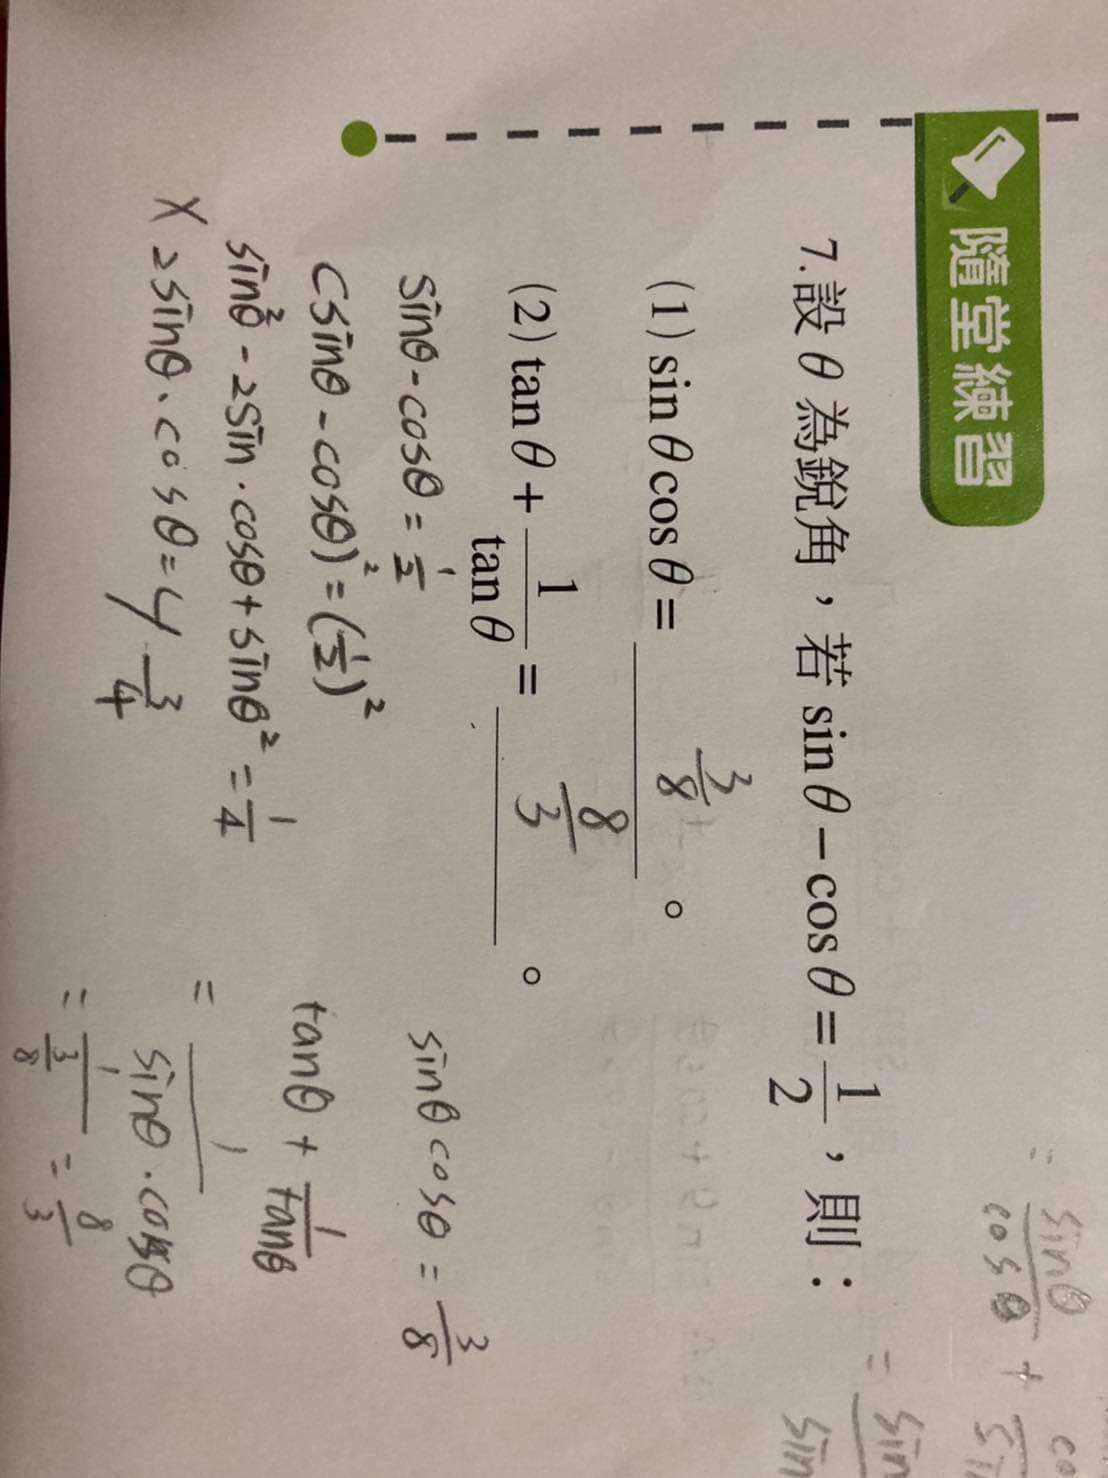 隨堂練習
7.設 θ 為銳角，若 sin θ − cos θ = 1/2，則：
(1) sin θ cos θ = 3/8 。
(2) tan θ + 1/tan θ = 8/3 。
sinθ - cosθ = 1/2
(sinθ - cosθ)² = (1/2)²
sin²θ - 2sin·cosθ + sinθ² = 1/4
2sinθ·cosθ = 3/4
sinθ cosθ = 3/8
tanθ + 1/tanθ
= 1/sinθ·cosθ
= 1/(3/8) = 8/3
= sinθ/cosθ +
= sin
sin